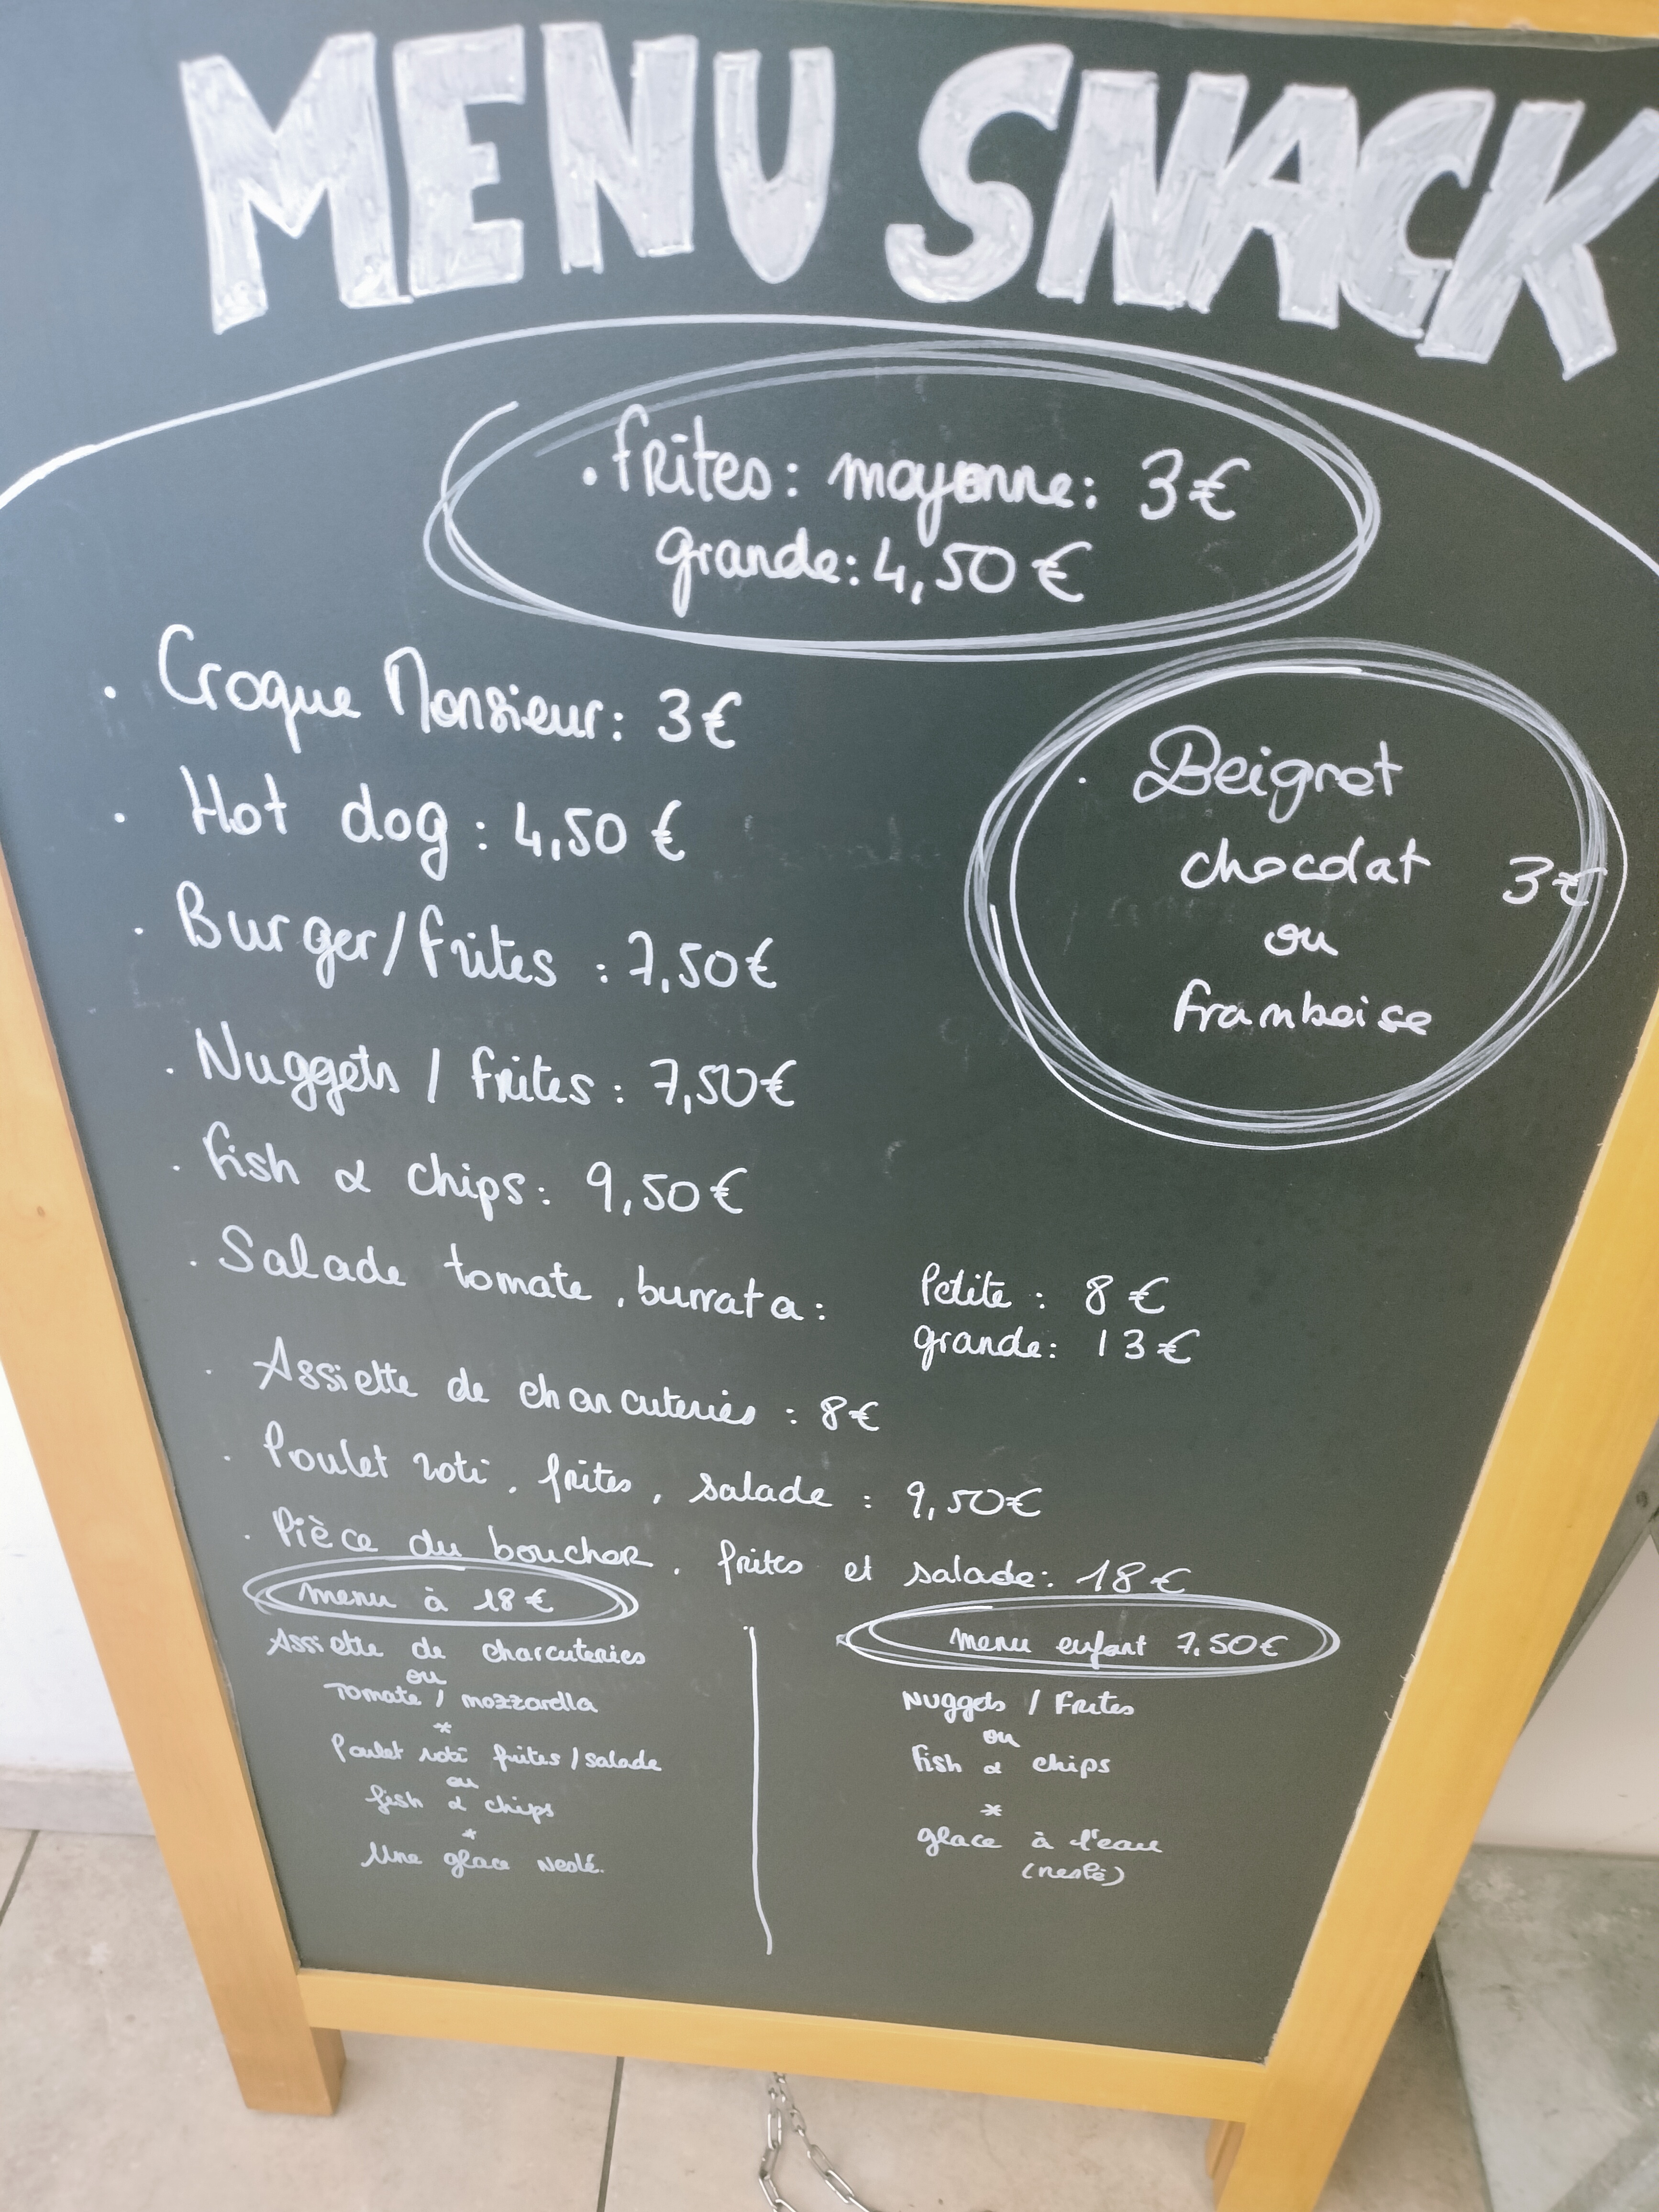 MENU SNACK
• frites : moyenne : 3€
grande : 4,50 €
• Croque Monsieur : 3€
• Hot dog : 4,50 €
• Beignet
chocolat 3€
ou
framboise
• Burger/frites : 7,50€
• Nuggets / frites : 7,50€
• fish & chips : 9,50€
• Salade tomate, burrata : Petite : 8 €
grande : 13€
• Assiette de charcuteries : 8€
• Poulet roti, frites, salade : 9,50€
• Pièce du boucher, frites et salade : 18€
menu à 18€
Assiette de charcuteries
ou
Tomate / mozzarella
*
Poulet roti frites / salade
ou
fish & chips
*
Une glace Nestlé.
menu enfant 7,50€
Nuggets / Frites
ou
fish & chips
*
glace à l'eau
(nestlé)